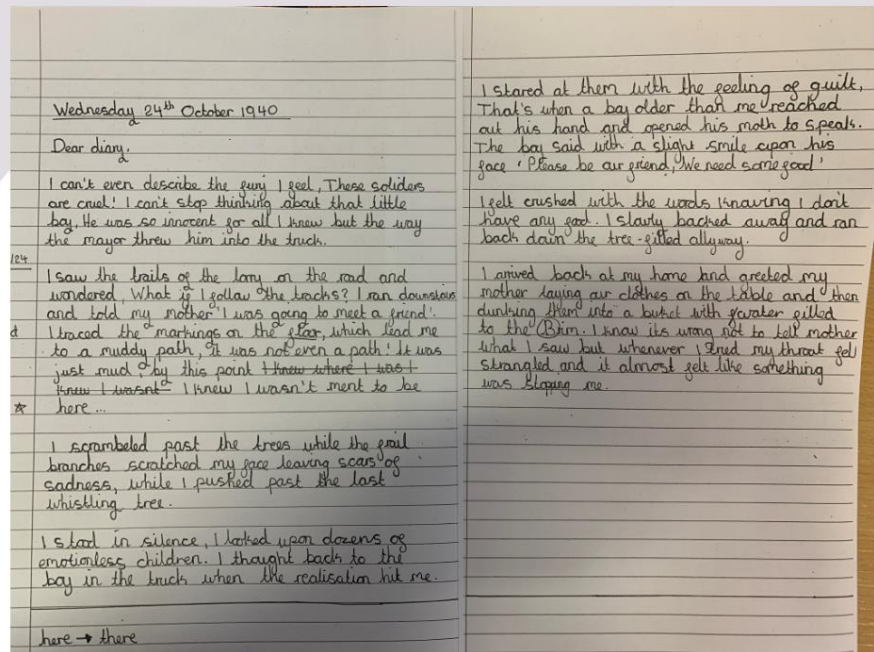 Wednesday 24th October 1940
Dear diary,
I can't even describe the fury I feel, These soliders
are cruel! I can't stop thinking about that little
boy, He was so innocent for all I knew but the way
the mayor threw him into the truck.
124
I saw the trails of the lorry on the road and
wondered, What if I follow the tracks? I ran downstairs
and told my mother 'I was going to meet a friend'.
d
I traced the markings on the floor, which lead me
to a muddy path, It was not even a path! It was
just mud by this point I knew where I was I
knew I wasnt I knew I wasn't ment to be
here ...
I scrambeled past the trees while the frail
branches scratched my face leaving scars of
sadness, while I pushed past the last
whistling tree.
I stood in silence, I looked upon dozens of
emotionless children. I thought back to the
boy in the truck when the realisation hit me.
here → there
I stared at them with the feeling of guilt,
That's when a boy older than me reached
out his hand and opened his moth to speak.
The boy said with a slight smile upon his
face 'Please be our friend, We need some food'
I felt crushed with the words knowing I don't
have any food. I slowly backed away and ran
back down the tree-filled allyway.
I arrived back at my home and greeted my
mother laying our clothes on the table and then
dunking them into a bucket with water filled
to the Brim. I know its wrong not to tell mother
what I saw but whenever I tried my throat fel
strangled and it almost felt like something
was stopping me.